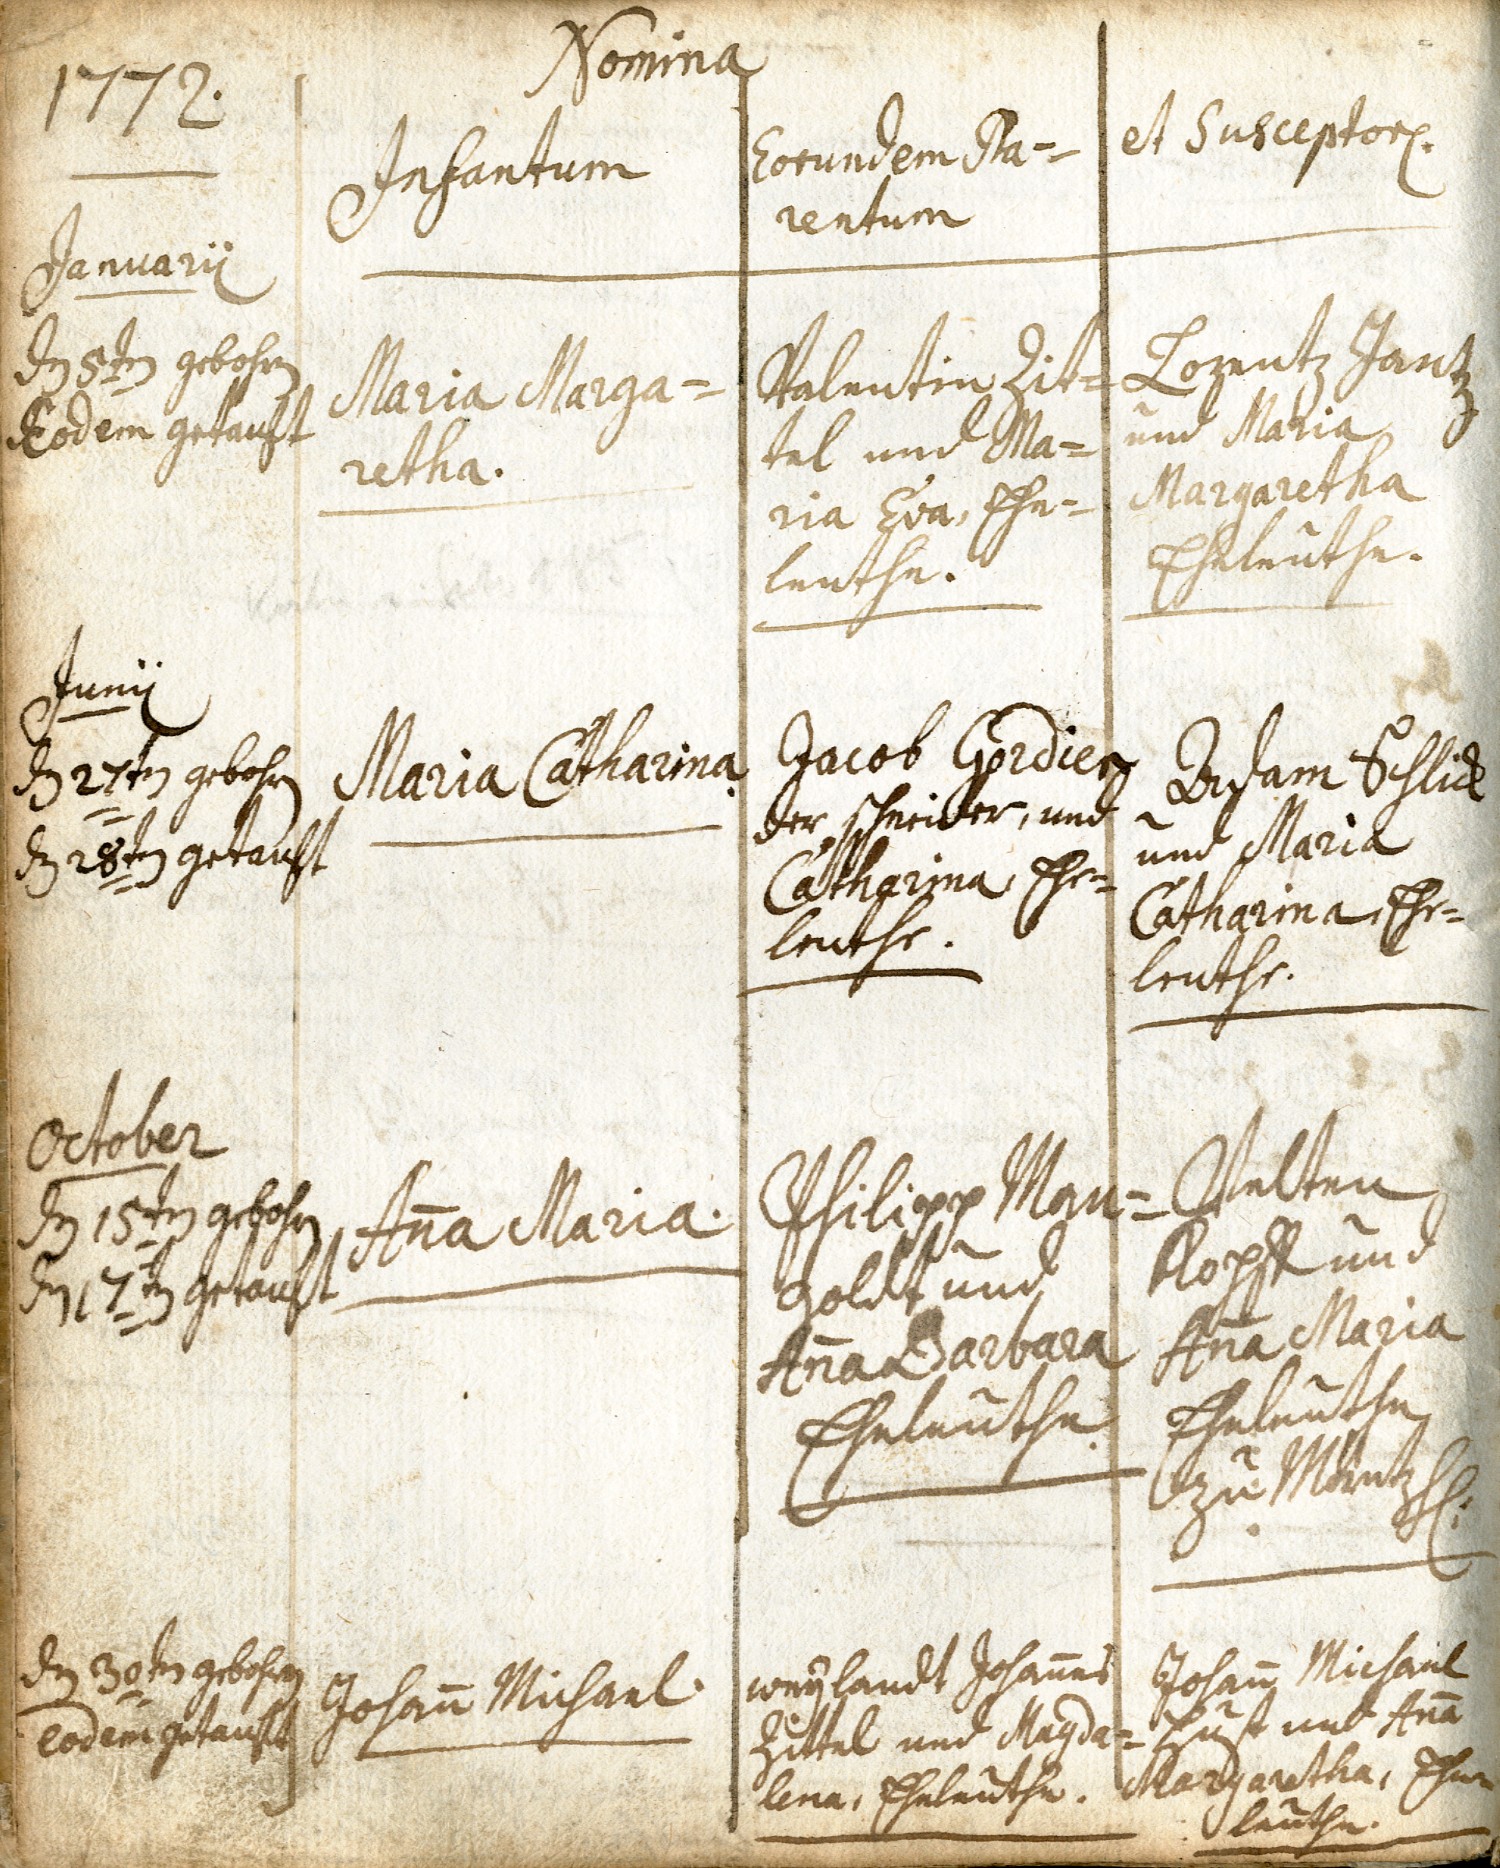 1772.
Nomina
Infantum
Eorundem Pa-
rentum
et Susceptor.
Januarii
den 5ten gebohren
Eodem getaufft
Maria Marga-
retha.
Valentin Zit-
tel und Ma-
ria Eva, Ehe-
leuthe.
Lorentz Jantz
und Maria
Margaretha
Eheleuthe.
Junii
den 27ten gebohren
den 28ten getaufft
Maria Catharina.
Jacob Gordier
der schneider, und
Catharina, Ehe-
leuthe.
Adam Schlick
und Maria
Catharina, Ehe-
leuthe.
October
den 15ten gebohren
den 17ten getaufft
Aña Maria.
Philipp Man-
goldt und
Aña Barbara
Eheleuthe.
Velten
Kopff und
Aña Maria
Eheleuthe
zu
den 30ten gebohren
eodem getaufft
Johañ Michael.
weylandt Johañes
Zittel und Magda-
lena, Eheleuthe.
Johañ Michael
und Aña
Margaretha, Ehe-
leuthe.